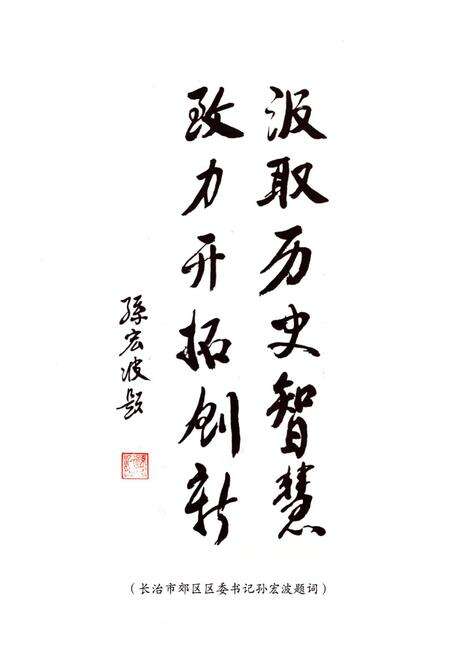 汲取历史智慧
致力开拓创新
孫宏波题
（长治市郊区区委书记孙宏波题词）